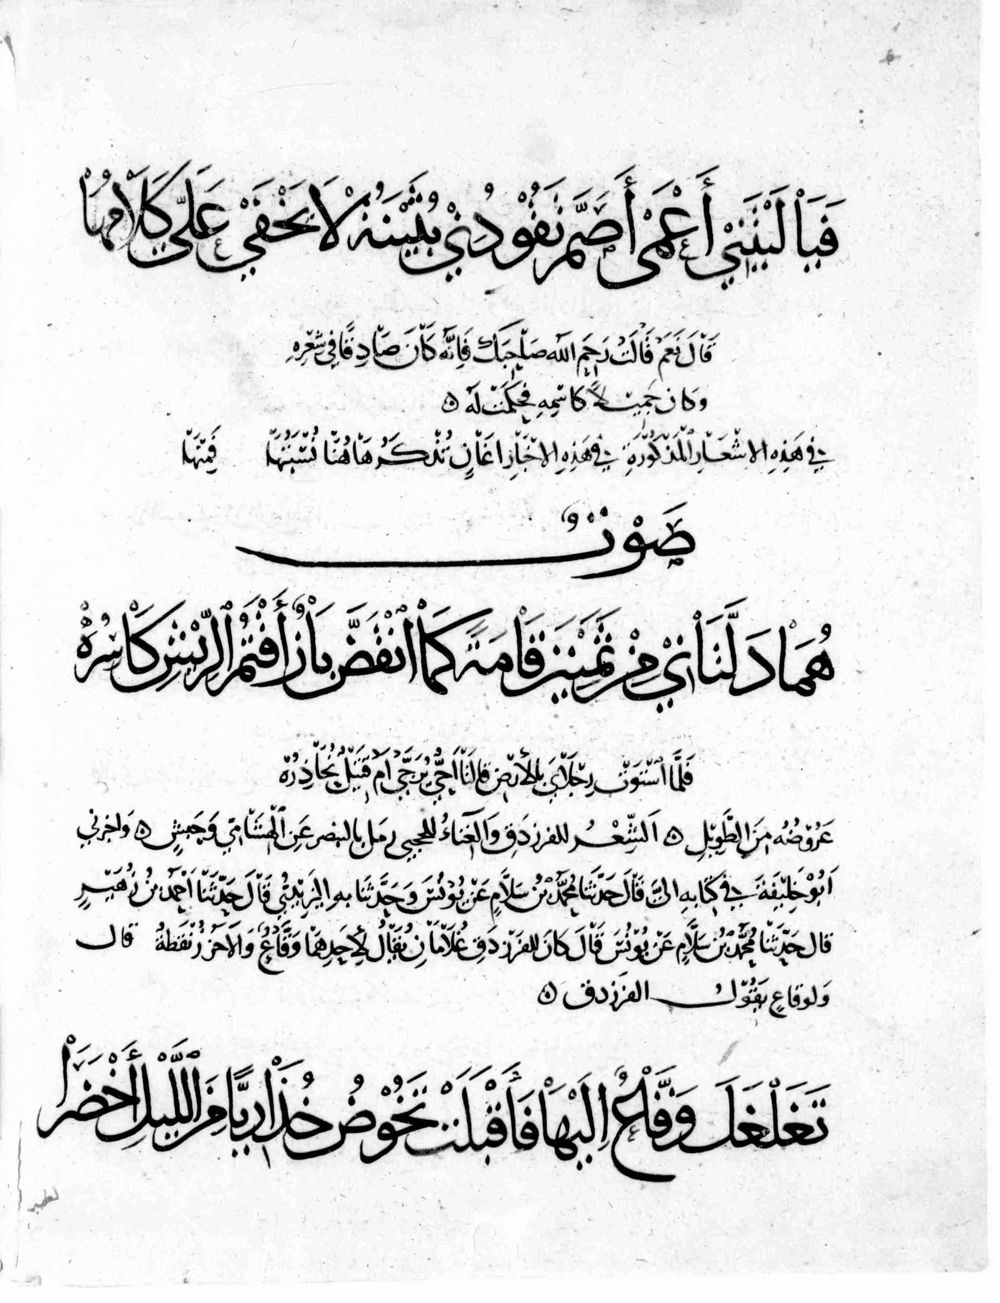 فَيَا لَيْتَنِي أَعْمَى أَصَمَّ تَقُودُنِي بُثَيْنَةُ لَا يَخْفَى عَلَيَّ كَلَامُهَا
قَالَ نَعَمْ قَالَتْ رَحِمَ اللهُ صَاحِبَكَ فَإِنَّهُ كَانَ صَادِقًا فِي شِعْرِهِ
وكان جميل كاسمه فحكمت له ٥
في هَذِهِ الاشْعَارِ المَذْكُورَةِ في وَهَذِهِ الاخْبَارِ اغَانٍ تُذْكَرُ هَاهُنَا نُسْبَتُهَا فَمِنْهَا
صَوْتٌ
هُمَا دَلَّتَانِي مِنْ ثَمَنِينَ قَامَةً كَمَا انْقَضَّ بَازٍ أَقْتَمُ الرِّيشِ كَاسِرُهْ
فَلَمَّا اسْتَوَتْ رِجْلَايَ بِالأَرْضِ قَالَتَا أَحَيٌّ يُرَجَّى أَمْ قَتِيلٌ نُحَاذِرُهْ
عَرُوضُهُ مِنَ الطَّوِيلِ ٥ الشِّعْرُ للفرزدق وَالغِنَاءُ للحجبي رمل بالبنصر عَنِ الهِشَامِيِّ وَحَبَشٍ ٥ واخبرني
أَبُو خَلِيفَةَ فِي كِتَابِهِ الَيَّ قَالَ حَدَّثَنَا مُحَمَّدُ بْنُ سَلَّامٍ عَنْ يُونُسَ وَحَدَّثَنَا بِهِ اليَزِيدِيُّ قَالَ حَدَّثَنَا أَحْمَدُ بْنُ زُهَيْرٍ
قال حَدَّثَنَا مُحَمَّدُ بْنُ سَلَّامٍ عَنْ يُونُسَ قَالَ كَانَ للفرزدق غُلَامَانِ يُقَالُ لِأَحَدِهِمَا وَقَّاعٌ وَالآخَرُ زَنْقَطَةُ قال
وَلوقاعٍ يَقُولُ الفرزدق ٥
تَغَلْغَلَ وَقَّاعٌ إِلَيْهَا فَأَقْبَلَتْ تَخُوضُ خُدَارِيًّا مِنَ اللَّيْلِ أَخْضَرَا